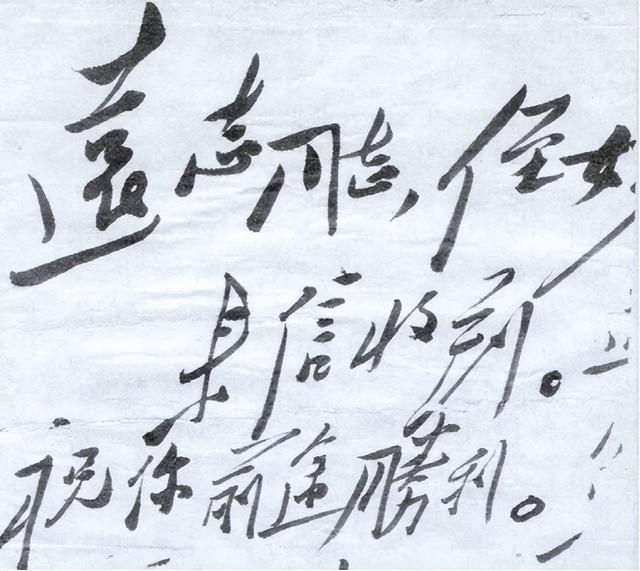 遠志同志,侄女
来信收到。
祝你前途勝利。